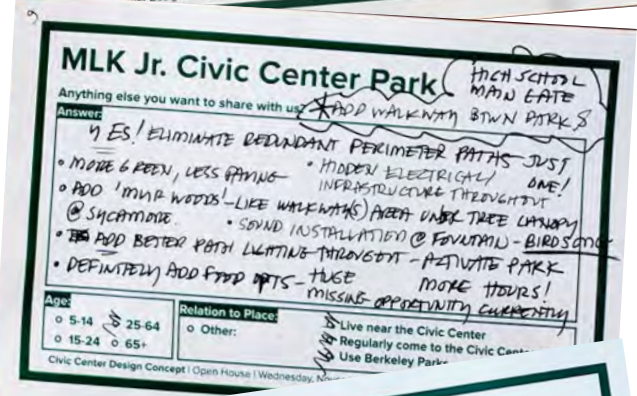 MLK Jr. Civic Center Park
HIGH SCHOOL
MAIN GATE
Anything else you want to share with us?
* ADD WALKWAY BTWN PARK &
Answer:
YES! ELIMINATE REDUNDANT PERIMETER PATHS - JUST
ONE!
• MORE GREEN, LESS PAVING
• HIDDEN ELECTRICAL/
INFRASTRUCTURE THROUGHOUT
• ADD 'MUIR WOODS'-LIKE WALKWAY(S) AREA UNDER TREE CANOPY
@ SYCAMORE.
• SOUND INSTALLATION @ FOUNTAIN - BIRDSONG
• ADD BETTER PATH LIGHTING THROUGHOUT - ACTIVATE PARK
MORE HOURS!
• DEFINITELY ADD FOOD OPTS - HUGE
MISSING OPPORTUNITY CURRENTLY
Age:
5-14
25-64
15-24
65+
Relation to Place:
Other:
Live near the Civic Center
Regularly come to the Civic
Use Berkeley Parks
Civic Center Design Concept | Open House | Wednesday,